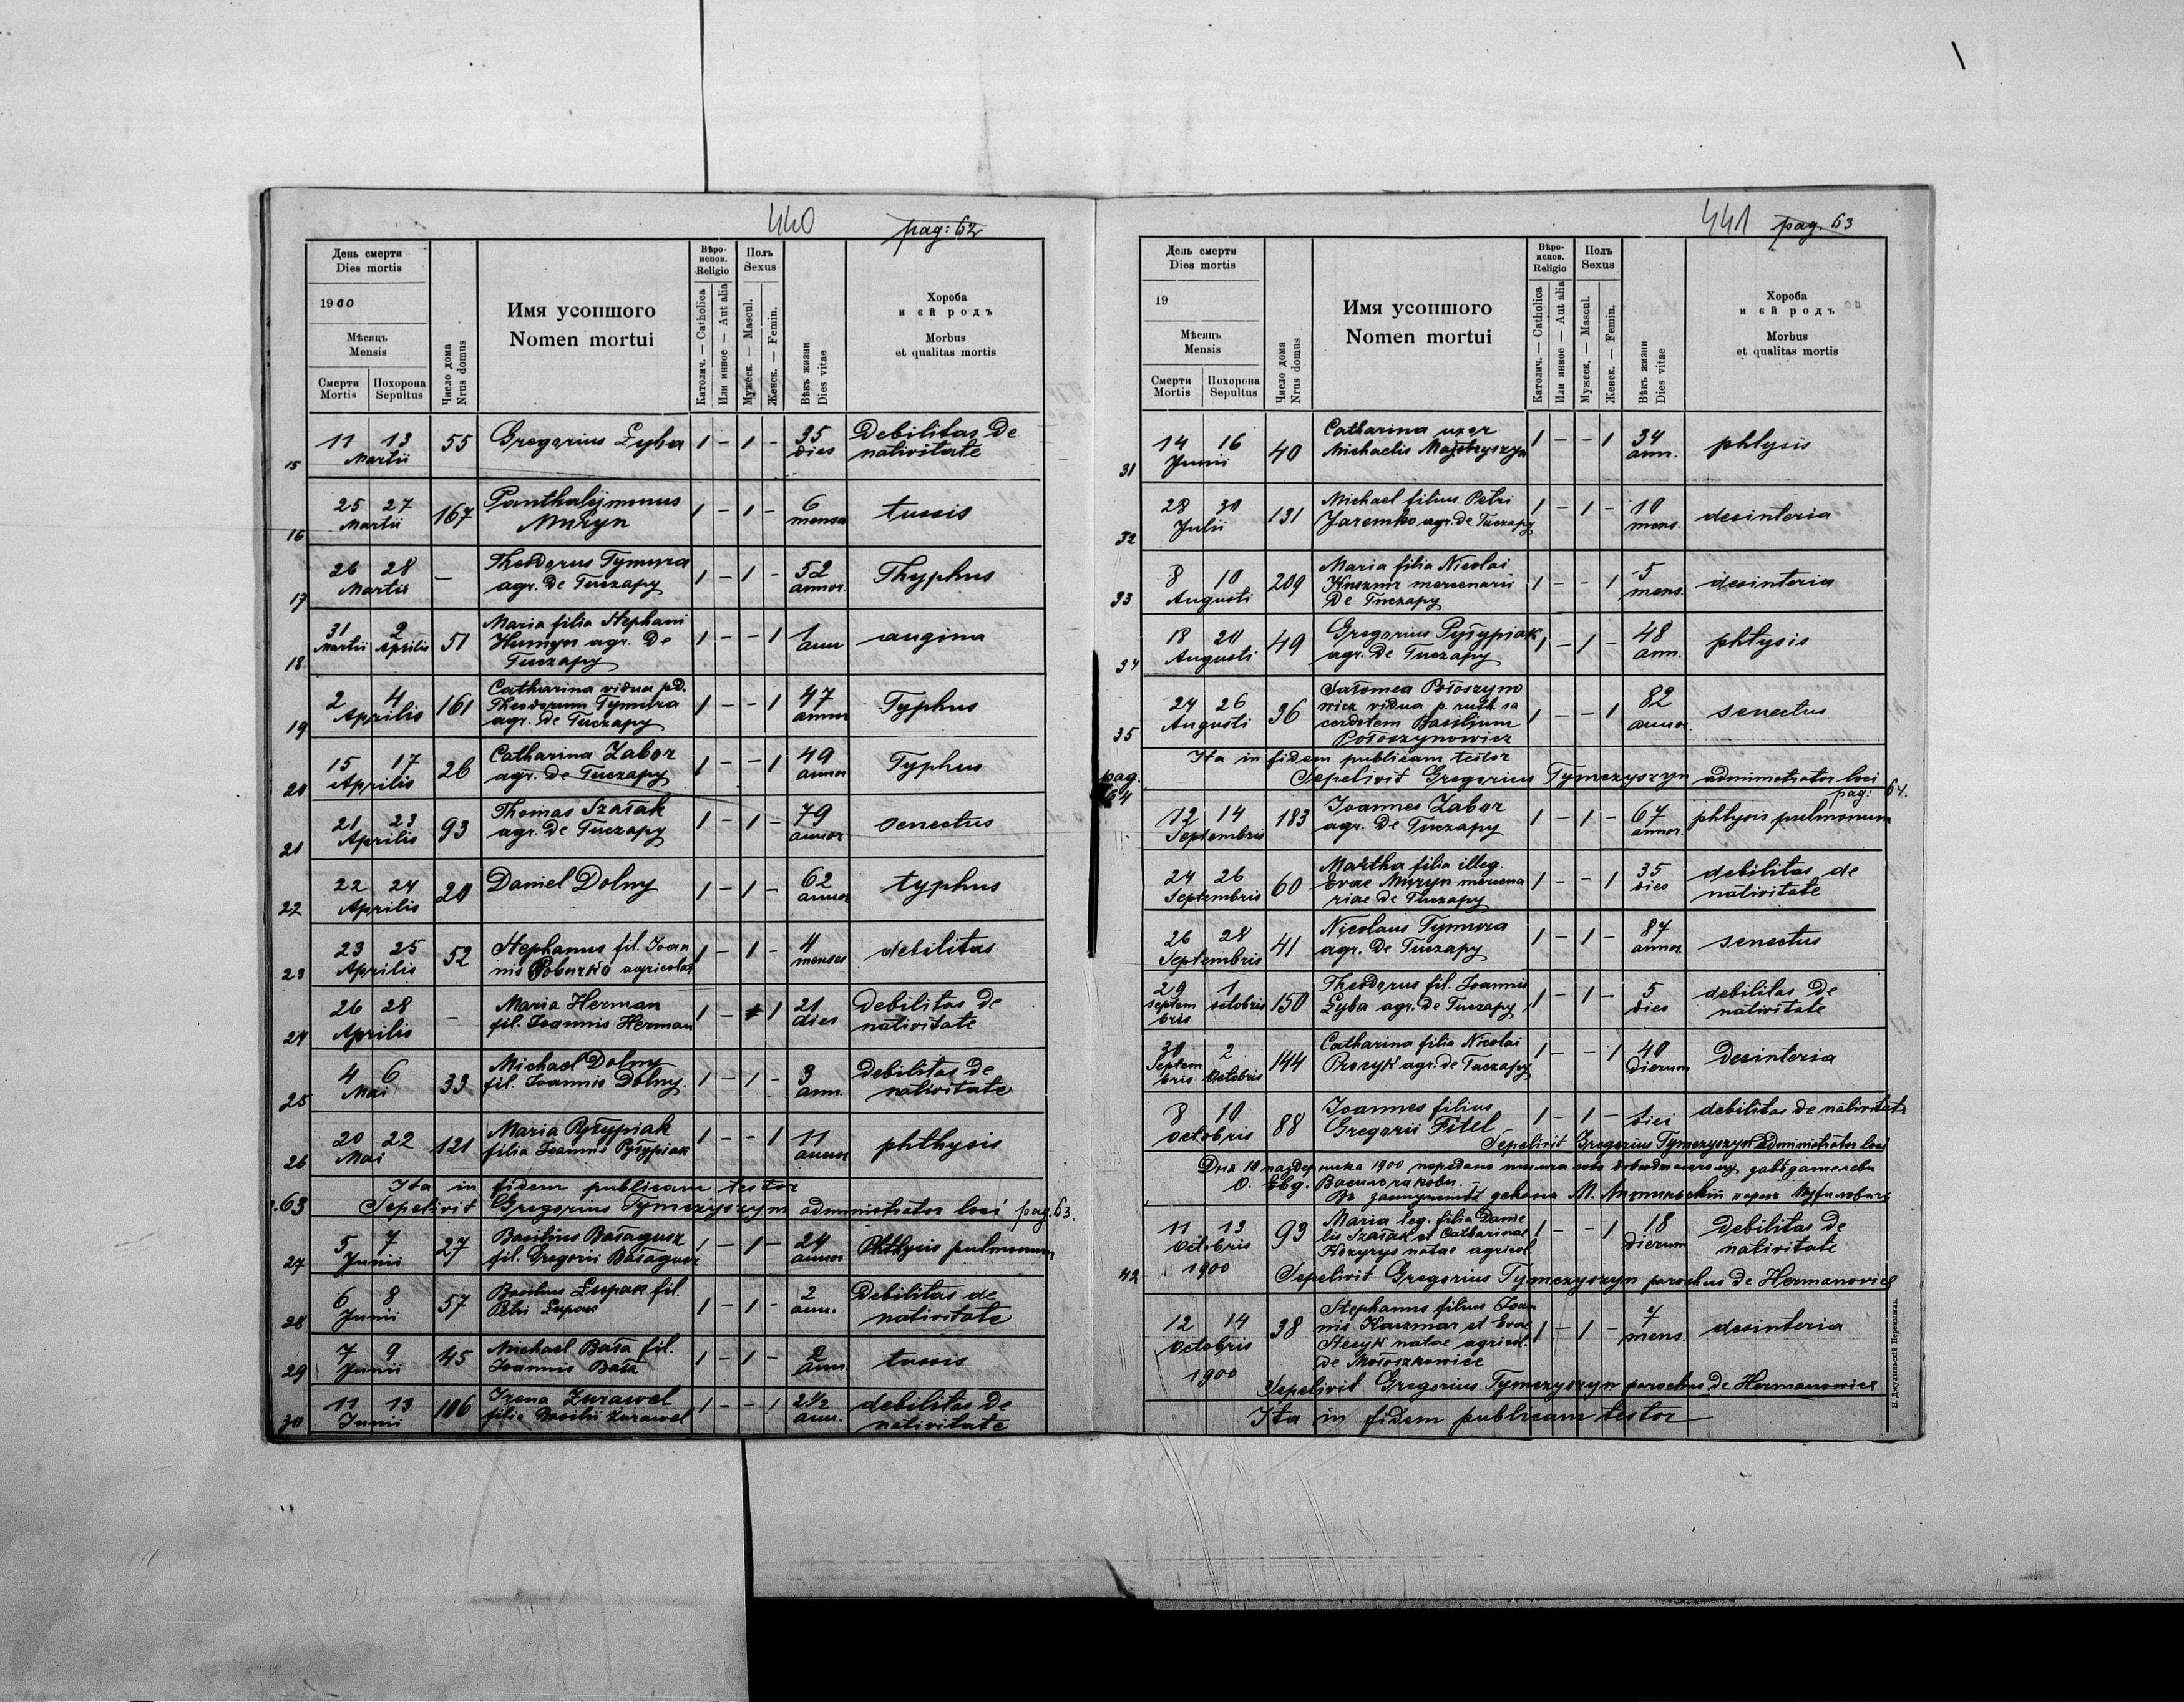 440
pag: 62
День смерти
Dies mortis
1900
Мѣсяць
Mensis
Смерти
Mortis
Похорона
Sepultus
Число дома
Nrus domus
Имя усопшого
Nomen mortui
Вѣро-
испов.
Religio
Католич. — Catholica
Или инное — Aut alia
Полъ
Sexus
Мужеск. — Mascul.
Женск. — Femin.
Вѣкъ жизни
Dies vitae
Хороба
и єй родъ
Morbus
et qualitas mortis
15 11 13 Martii 55 Gregorius Łyba 1 - 1 - 35 dies Debilitas de nativitate
16 25 27 Martii 167 Panthalejmonus Muzyn 1 - 1 - 6 mensa tussis
17 26 28 Martii — Theodorus Tymura agr. de Tuczapy 1 - 1 - 52 annor. Thyphus
18 31 Martii 2 Aprilis 51 Maria filia Stephani Humyn agr. de Tuczapy 1 - - 1 1 ann angina
19 2 4 Aprilis 161 Catharina vidua pd. Theodorum Tymura agr. de Tuczapy 1 - - 1 47 annor Typhus
20 15 17 Aprilis 26 Catharina Zabor agr. de Tuczapy 1 - - 1 49 annor Typhus
21 21 23 Aprilis 93 Thomas Szałak agr. de Tuczapy 1 - 1 - 79 annor senectus
22 22 24 Aprilis 20 Daniel Dolny 1 - 1 - 62 annor typhus
23 23 25 Aprilis 52 Stephanus fil. Joannis Poburko agricolae 1 - 1 - 4 menses debilitas
24 26 28 Aprilis — Maria Herman fil. Joannis Herman 1 - 1 21 dies Debilitas de nativitate
25 4 6 Mai 33 Michael Dolny fil. Joannis Dolny. 1 - 1 - 3 ann. debilitas de nativitate
26 20 22 Mai 121 Maria Pyłypiak filia Joannis Pyłypiak 1 - - 1 11 annor phthysis
Ita in fidem publicam testor
p.63 Sepelivit Gregorius Tymczyszyn administrator loci pag. 63.
27 5 7 Junii 27 Basilius Bałagusz fil. Gregorii Bałagusz 1 - 1 - 24 annor Phthysis pulmonum
28 6 8 Junii 57 Basilius Łupak fil. Petri Łupak 1 - 1 - 2 ann. Debilitas de nativitate
29 7 9 Junii 45 Michael Bała fil. Joannis Bała 1 - 1 - 2 ann. tussis
30 11 13 Junii 106 Irena Zurawel filia Basilii Zurawel 1 - - 1 2 1/2 ann. debilitas de nativitate
441
pag. 63
День смерти
Dies mortis
19
Мѣсяць
Mensis
Смерти
Mortis
Похорона
Sepultus
Число дома
Nrus domus
Имя усопшого
Nomen mortui
Вѣро-
испов.
Religio
Католич. — Catholica
Или инное — Aut alia
Полъ
Sexus
Мужеск. — Mascul.
Женск. — Femin.
Вѣкъ жизни
Dies vitae
Хороба
и єй родъ
Morbus
et qualitas mortis
31 14 16 Junii 40 Catharina uxor Michaelis 1 - - 1 34 ann. phtysis
32 28 30 Julii 131 Michael filius Petri Jaremko agr. de Tuczapy 1 - 1 - 10 mens. desinteria
33 8 10 Augusti 209 Maria filia Nicolai mercenarii de Tuczapy 1 - - 1 5 mens. desinteria
34 18 20 Augusti 49 Gregorius Pyłypiak agr. de Tuczapy 1 - 1 - 48 ann. phtysis
35 24 26 Augusti 36 Sałomea Połoszynowicz vidua p. ruth. sacerdotem Basilium Połoszynowicz 1 - - 1 82 annor. senectus
Ita in fidem publicam testor
pag. 64 Sepelivit Gregorius Tymczyszyn administrator loci
pag: 64.
12 14 Septembris 183 Joannes Zabor agr. de Tuczapy 1 - 1 - 67 annor. phtysis pulmonum
24 26 Septembris 60 Martha filia illeg. Evae Muzyn mercenariae de Tuczapy 1 - - 1 35 dies debilitas de nativitate
26 28 Septembris 41 Nicolaus Tymura agr. de Tuczapy 1 - 1 - 87 annor. senectus
29 septembris 1 octobris 150 Theodorus fil. Joannis Łyba agr. de Tuczapy 1 - 1 - 5 dies debilitas de nativitate
30 Septembris 2 Octobris 144 Catharina filia Nicolai Procyk agr. de Tuczapy 1 - - 1 40 dierum Desinteria
8 10 octobris 88 Joannes filius Gregorii Fitel 1 - 1 - 1 diei debilitas de nativitate
Sepelivit Gregorius Tymczyszyn administrator loci
Дня 10 1900 передано завѣдателеви
о. Евг. Василъ
Въ декана М.
11 13 octobris 1900 93 Maria leg. filia Danielis Szałak et Catharinae Kozyrys natae agricol. 1 - - 1 18 dierum Debilitas de nativitate
42 Sepelivit Gregorius Tymczyszyn parochus de Hermanowice
12 14 octobris 1900 38 Stephanus filius Joannis Kaczmar et Evae Stecyk natae agricol. de Mołoszkowice 1 - 1 - 7 mens. desinteria
Sepelivit Gregorius Tymczyszyn parochus de Hermanowice
Ita in fidem publicam testor
Н. Джулиньскій Перемышль